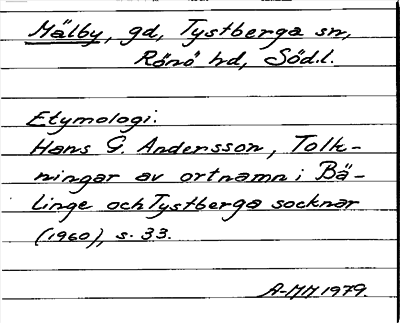 Mälby, gd, Tystberga sn,
Rönö hd, Södl.
Etymologi:
Hans G. Andersson, Tolk-
ningar av ortnamn i Bä-
linge och Tystberga socknar
(1960), s. 33.
A-MM 1979.